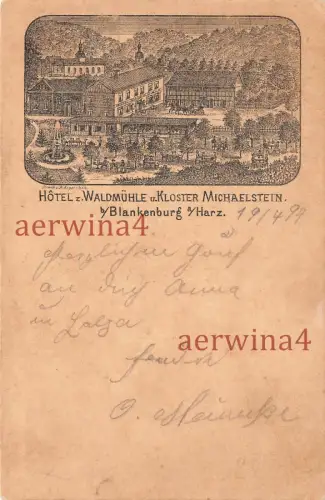 HÔTEL z. WALDMÜHLE u. KLOSTER MICHAELSTEIN.
b/Blankenburg a/Harz.
19/4 97
aerwina4
Herzlichen Gruß
an dich Anna
aerwina4
sendet
O.